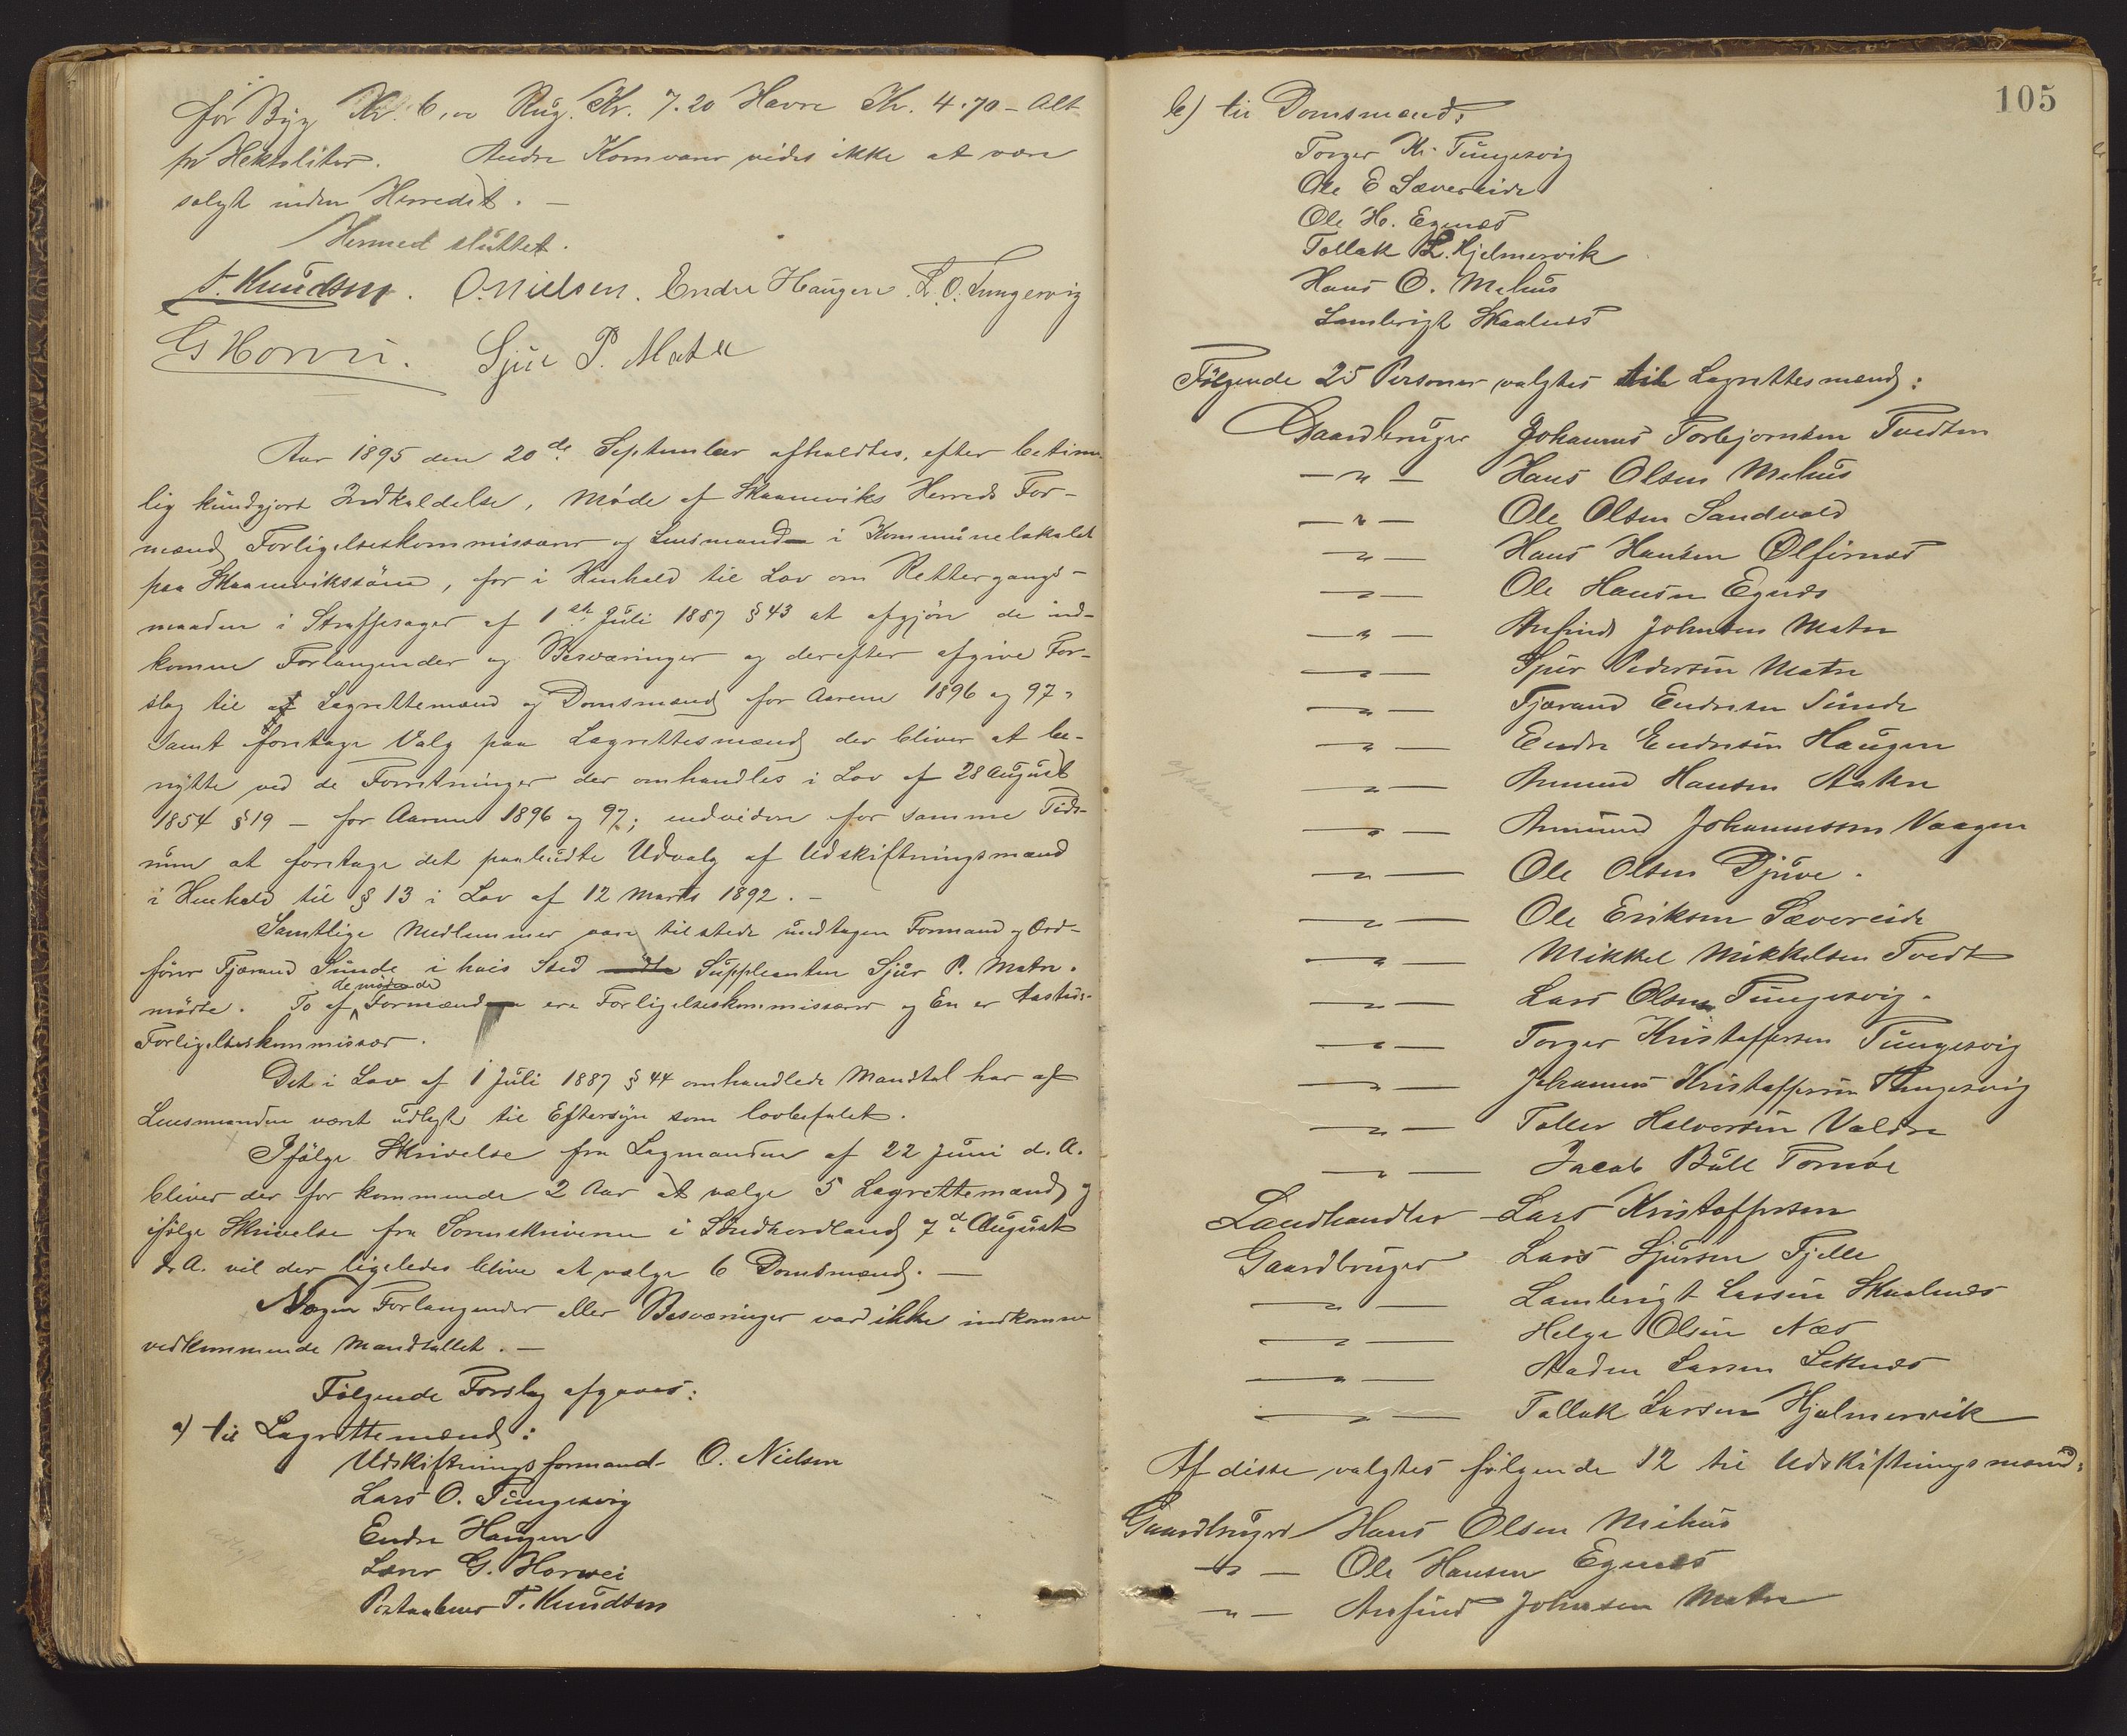 for Byg Kr. 6,00 Rug. Kr. 7.20 Havre Kr. 4.70 - Alt
pr Hektoliter. Andre Kornvarer vides ikke at være
solgt inden Herredet. -
Hermed sluttet.
T. Knudsen. O. Nielsen. Endre Haugen. L. O. Tungesvig
G Horvei. Sjur P. Matre
Aar 1895 den 20de September afholdtes, efter betime-
lig kundgjort Indkaldelse, Møde af Skaaneviks Herreds For-
mænd, Forligelseskommissærer og Lensmand i Kommunelokalet
paa Skaanevikssøen, for i Henhold til Lov om Rettergangs-
maaden i Straffesager af 1ste Juli 1887 § 43 at afgjøre de ind-
komne Forlangender og Besværinger og derefter afgive For-
slag til af Lagrettemænd og Domsmænd for Aarene 1896 og 97,
samt foretage Valg paa Lagrettesmænd der bliver at be-
nytte ved de Forretninger der omhandles i Lov af 28 August
1854 § 19 - for Aarene 1896 og 97; endvidere for samme Tids-
rum at foretage det paabudte Udvalg af Udskiftningsmænd
i Henhold til § 13 i Lov af 12 Marts 1892. -
Samtlige Medlemmer vare tilstede undtagen Formand og Ord-
fører Fjærand Sunde i hvis Sted mødte Suppleanten Sjur P. Matre.
mødte. To af de mødende Formænd ere Forligelseskommissærer og En er Aasteds-
Forligelseskommissær.
Det i Lov af 1 Juli 1887 § 44 omhandlede Mandtal har af
Lensmanden været udlagt til Eftersyn som lovbefalet.
Ifølge Skrivelse fra Lagmanden af 22 Juni d. A.
bliver der for kommende 2 Aar at vælge 5 Lagrettemænd og
ifølge Skrivelse fra Sorenskriveren i Søndhordland 7de August
d. A. vil der ligeledes blive at vælge 6 Domsmænd. -
Nogen Forlangender eller Besværinger var ikke indkomne
vedkommende Mandtallet. -
Følgende Forslag afgaves:
a) til Lagrettemænd:
Udskiftningsformand O. Nielsen
Lars O. Tungesvig
Endre Haugen
Lærer G. Horvei
Postaabner T. Knudsen
105
b) til Domsmænd:
Torger Kr. Tungesvig
Ole E Sævereide
Ole H. Egenæs
Tollak L. Hjelmervik
Hans O. Mehus
Lambrigt Skaalnæs
Følgende 25 Personer valgtes til Lagrettesmænd:
Gaardbruger Johannes Torbjørnsen Tvedten
— " — Hans Olsen Mehus
— " — Ole Olsen Sandvold
— " — Hans Hansen Ølfernæs
— " — Ole Hansen Egnæs
— " — Anfind Johnsen Matre
— " — Sjur Pedersen Matre
— " — Fjærand Endresen Sunde
— " — Endre Endresen Haugen
— " — Amund Hansen Aakre
— " — Amund Johannessen Vaagen
— " — Ole Olsen Djuve.
— " — Ole Eriksen Sævereide
— " — Mikkel Mikkelsen Tvedt
— " — Lars Olsen Tungesvig.
— " — Torger Kristoffersen Tungesvig
— " — Johannes Kristoffersen Tungesvig
— " — Toller Halvorsen Valdre
— " — Jacob Bull Tornøe
Landhandler Lars Kristoffersen
Gaardbruger Lars Sjursen Fjelle
— " — Lambrigt Larsen Skaalnæs
— " — Helge Olsen Næs
— " — Aaden Larsen Leknæs
— " — Tollak Larsen Hjelmervik
Af disse valgtes følgende 12 til Udskiftningsmænd:
Gaardbruger Hans Olsen Mehus
— " — Ole Hansen Egenæs
— " — Anfind Johnsen Matre